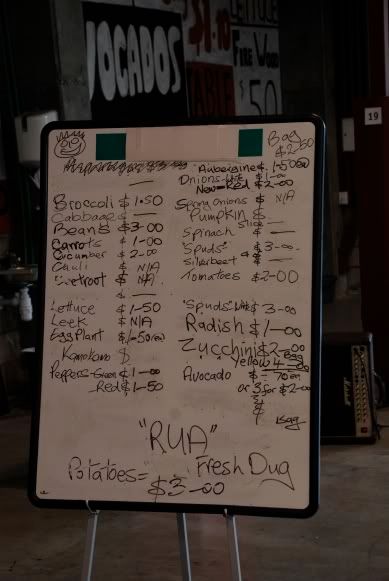 VOCADOS
$1.10
LETTUCE
FIRE WOOD
$50
19
Bag
$2-50
Aubergine $1-50ea
Onions-Wht $1-00
New-Red $2-00
Broccoli $1.50
Cabbage $ —
Beans $3-00
Carrots $1-00
Cucumber $2-00
Chili $ N/A
Beetroot $ N/A
Lettuce $1-50
Leek $ N/A
Egg Plant $1-50ea
Kamokamo $
Peppers-Green $1-00
Red $1-50
Spring Onions $ N/A
Pumpkin $ —
Slice
Spinach $ —
"Spuds" $3-00
Silverbeet $ —
Tomatoes $2-00
"Spuds" Wht $3-00
Radish $1-00
Zucchini $2-00
Yellow Bag
Avocado $ -70ea
or 3 for $2-00
$
$
Bag
"RUA"
Potatoes= Fresh Dug
$3-00